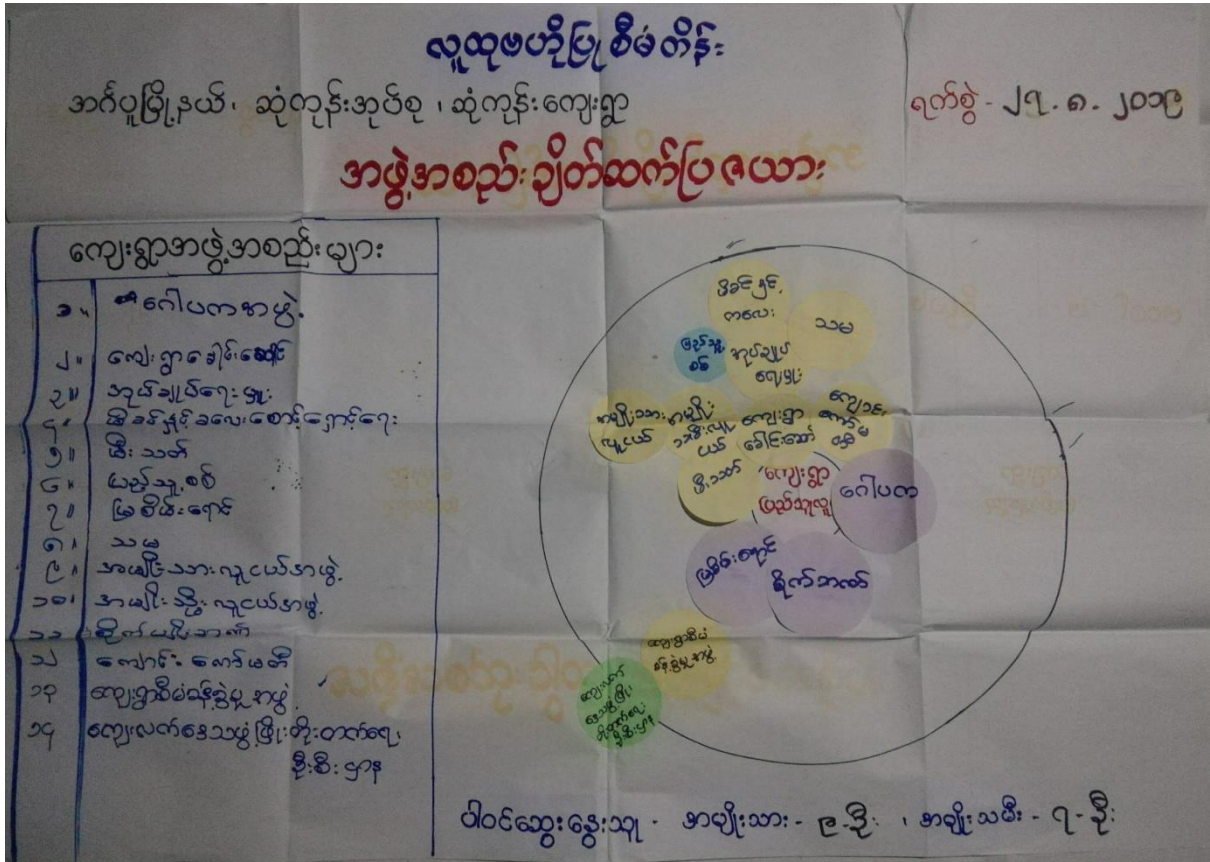 လူထုဗဟိုပြုစီမံကိန်း
အင်္ဂပူမြို့နယ်၊ ဆုံကုန်းအုပ်စု၊ ဆုံကုန်းကျေးရွာ
ရက်စွဲ - ၂၇.၈.၂၀၁၉
အဖွဲ့အစည်းချိတ်ဆက်ပြဇယား
ကျေးရွာအဖွဲ့အစည်းများ
၁။ ဂေါပကအဖွဲ့
၂။ ကျေးရွာခေါင်းဆောင်
၃။ အုပ်ချုပ်ရေးမှူး
၄။ မိခင်နှင့်ခလေးစောင့်ရှောင့်ရေး
၅။ မီးသတ်
၆။ ပြည်သူ့စစ်
၇။ မြစိမ်းရောင်
၈။ သမ
၉။ အမျိုးသားလူငယ်အဖွဲ့
၁၀။ အမျိုးသ္မီးလူငယ်အဖွဲ့
၁၁
၁၂ ကျောင်းကော်မတီ
၁၃ ကျေးရွာစီမံခန့်ခွဲမှုအဖွဲ့
၁၄ ကျေးလက်ဒေသဖွံ့ဖြိုးတိုးတက်ရေး
ဦးစီးဌာန
မိခင်နှင့်
ကလေး
သမ
ပြည်သူ့
စစ်
အုပ်ချုပ်
ရေးမှူး
အမျိုးသား
လူငယ်
အမျိုး
သမီးလူ
ငယ်
ကျေးရွာ
ခေါင်းဆောင်
ကျောင်း
ကော်မ
တီ
မီးသတ်
ကျေးရွာ
ပြည်သူလူ
ဂေါပက
မြစိမ်းရောင်
စိုက်ဘဏ်
ကျေးရွာစီမံ
ခန့်ခွဲမှုအဖွဲ့
ကျေးလက်
ဒေသဖွံ့ဖြိုး
တိုးတက်ရေး
ဦးစီးဌာန
ပါဝင်ဆွေးနွေးသူ - အမျိုးသား - ၉-ဦး ၊ အမျိုးသမီး - ၇-ဦး